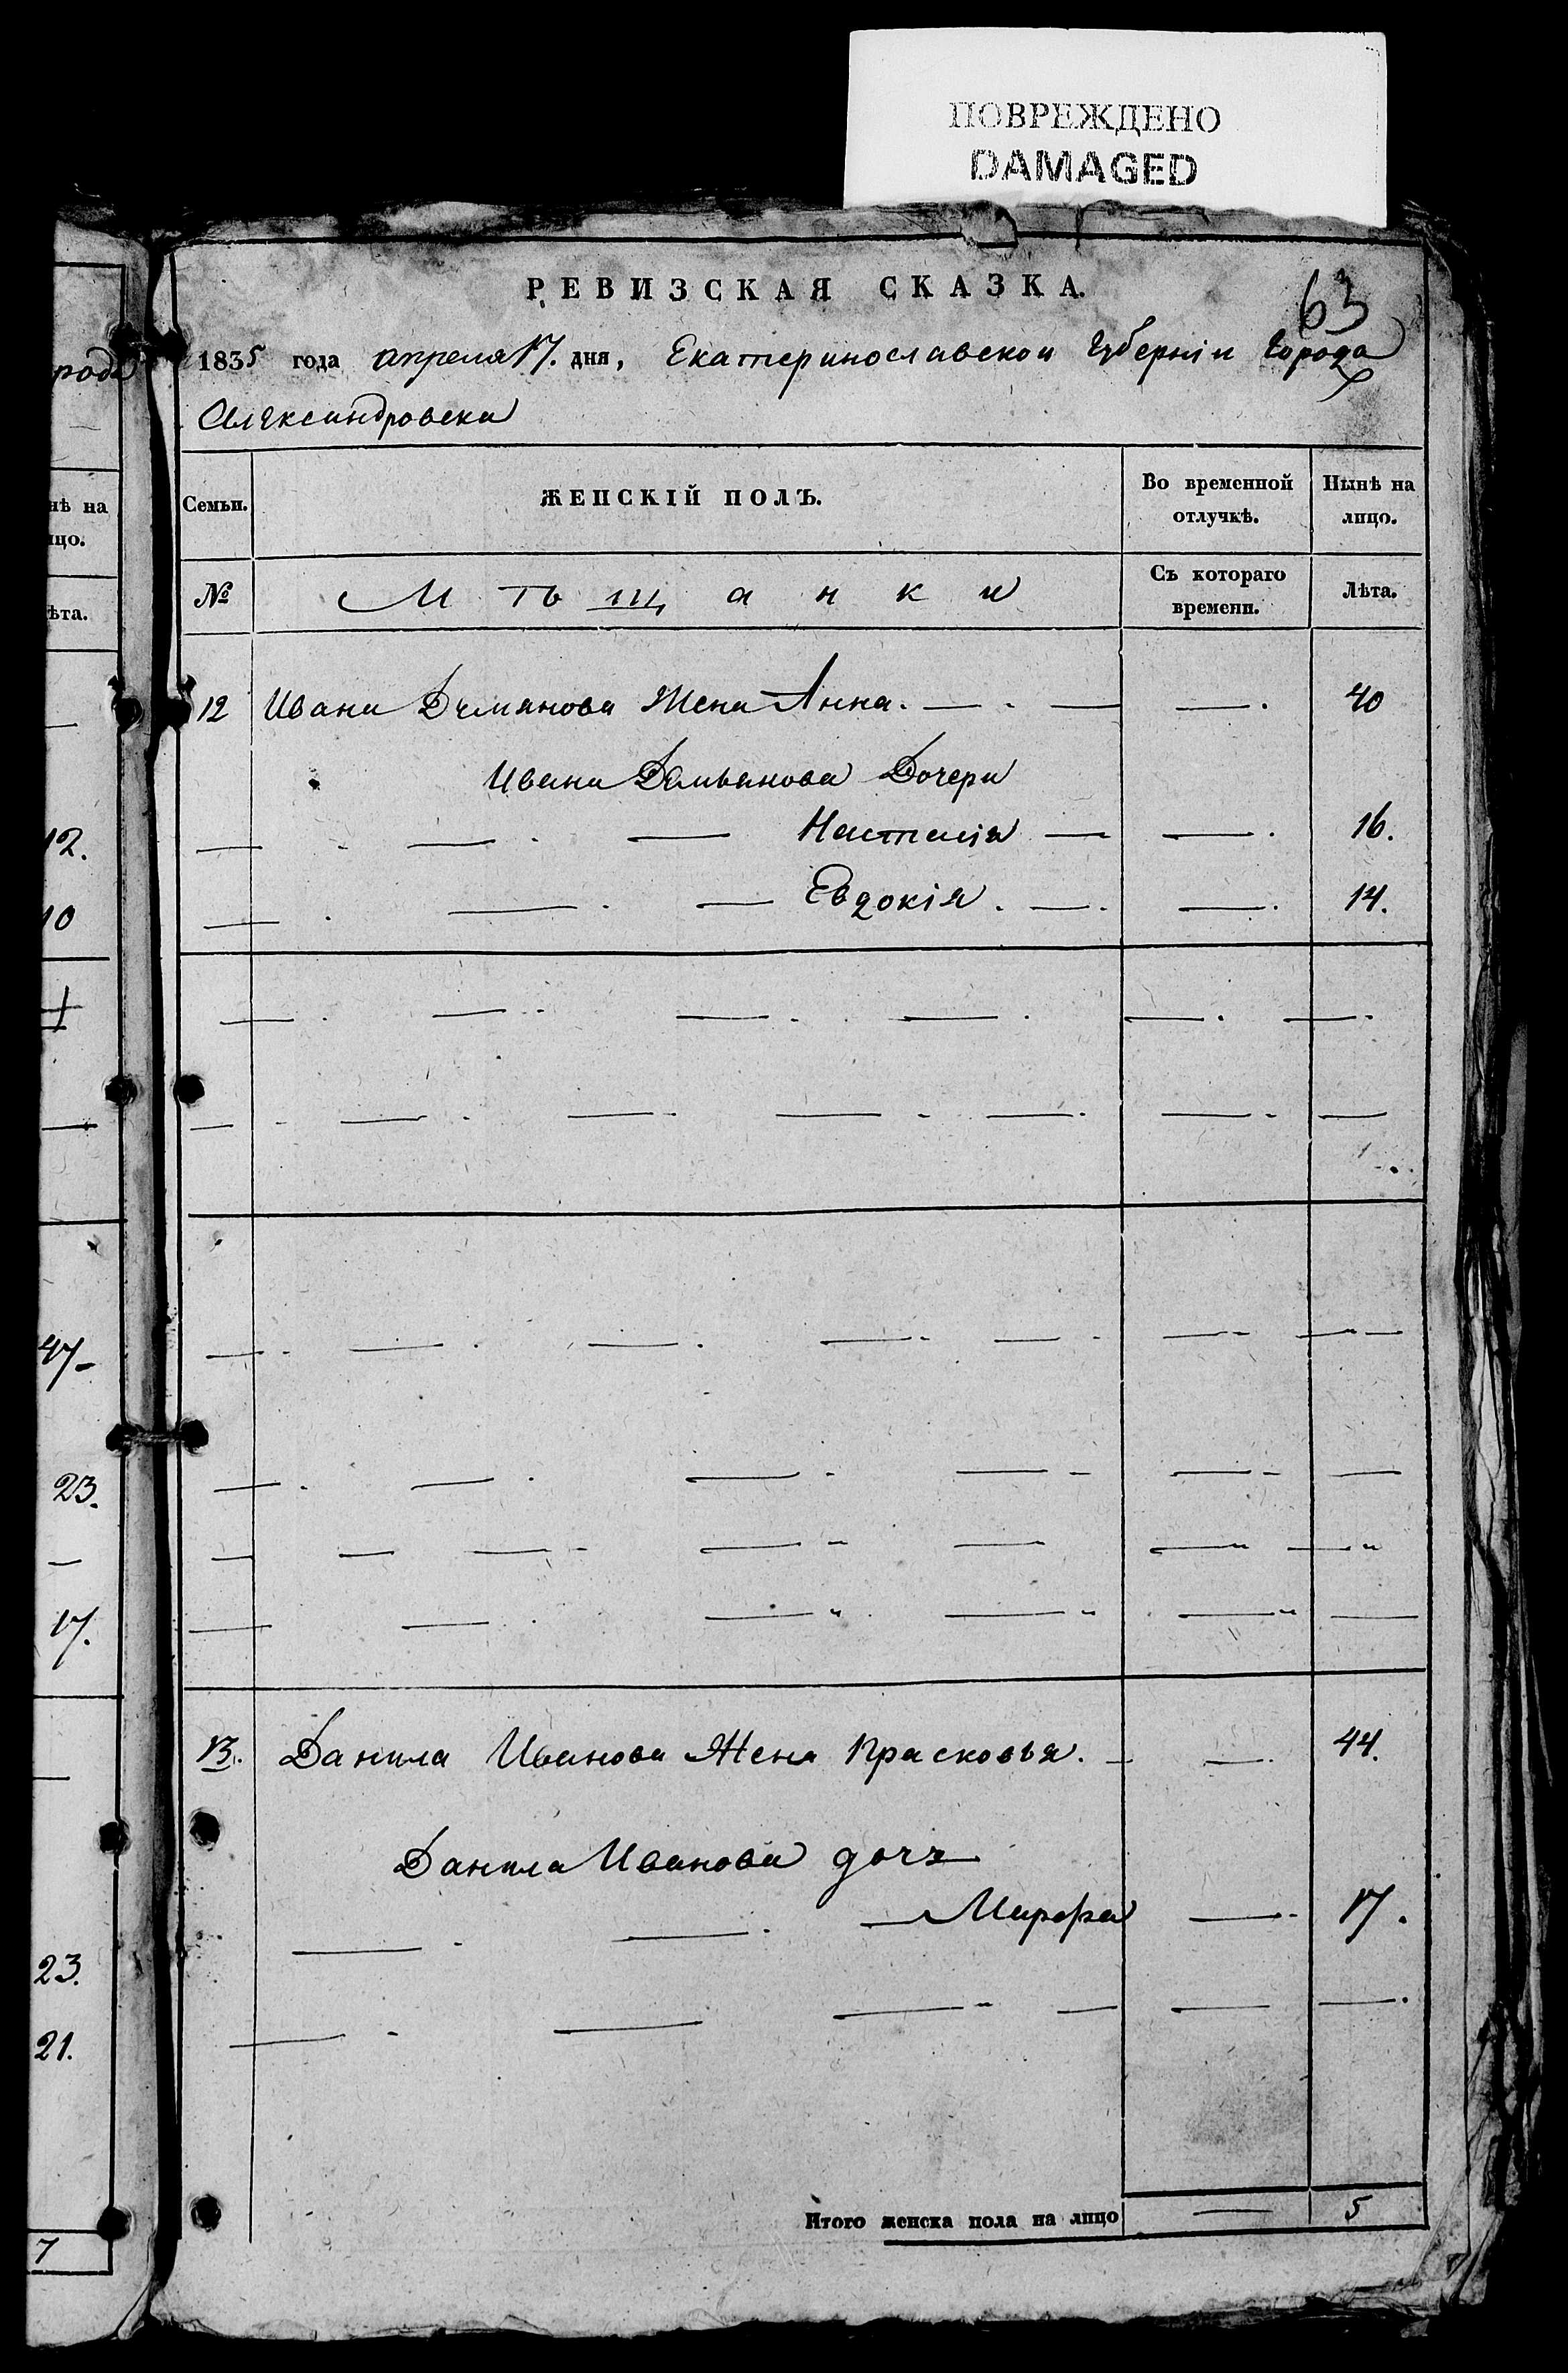 ПОВРЕЖДЕНО
DAMAGED
РЕВИЗСКАЯ СКАЗКА.
63
1835 года апреля 17. дня, Екатеринославской Губерніи Города
Александровска
Семьи. ЖЕНСКІЙ ПОЛЪ. Во временной отлучкѣ. Нынѣ на лицо.
№ Мѣщанки Съ котораго времени. Лѣта.
12 Ивана Демянова Жена Анна. — . — — . 40
Ивана Демьянова Дочери
— . — . — Настасія — — . 16.
— . — . — Евдокія . — . — . 14.
13. Данила Иванова Жена Прасковья. — — . 44.
Данила Иванова дочь
— . — . — Марфа — . 17.
Итого женска пола на лицо — 5
рода
нѣ на
ицо.
ѣта.
12.
10
47
23.
17.
23.
21.
7